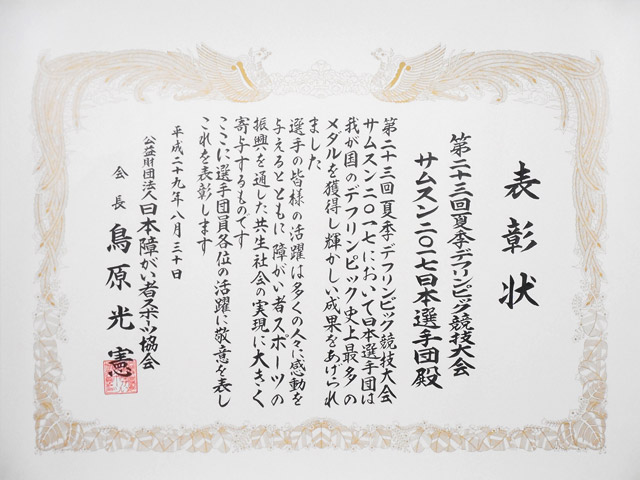 表彰状
第二十三回夏季デフリンピック競技大会
サムスン二〇一七日本選手団殿
第二十三回夏季デフリンピック競技大会
サムスン二〇一七において日本選手団は
我が国のデフリンピック史上最多の
メダルを獲得し輝かしい成果をあげられ
ました
選手の皆様の活躍は多くの人々に感動を
与えるとともに障がい者スポーツの
振興を通した共生社会の実現に大きく
寄与するものです
ここに選手団員各位の活躍に敬意を表し
これを表彰します
平成二十九年八月三十日
公益財団法人日本障がい者スポーツ協会
会長 鳥原光憲